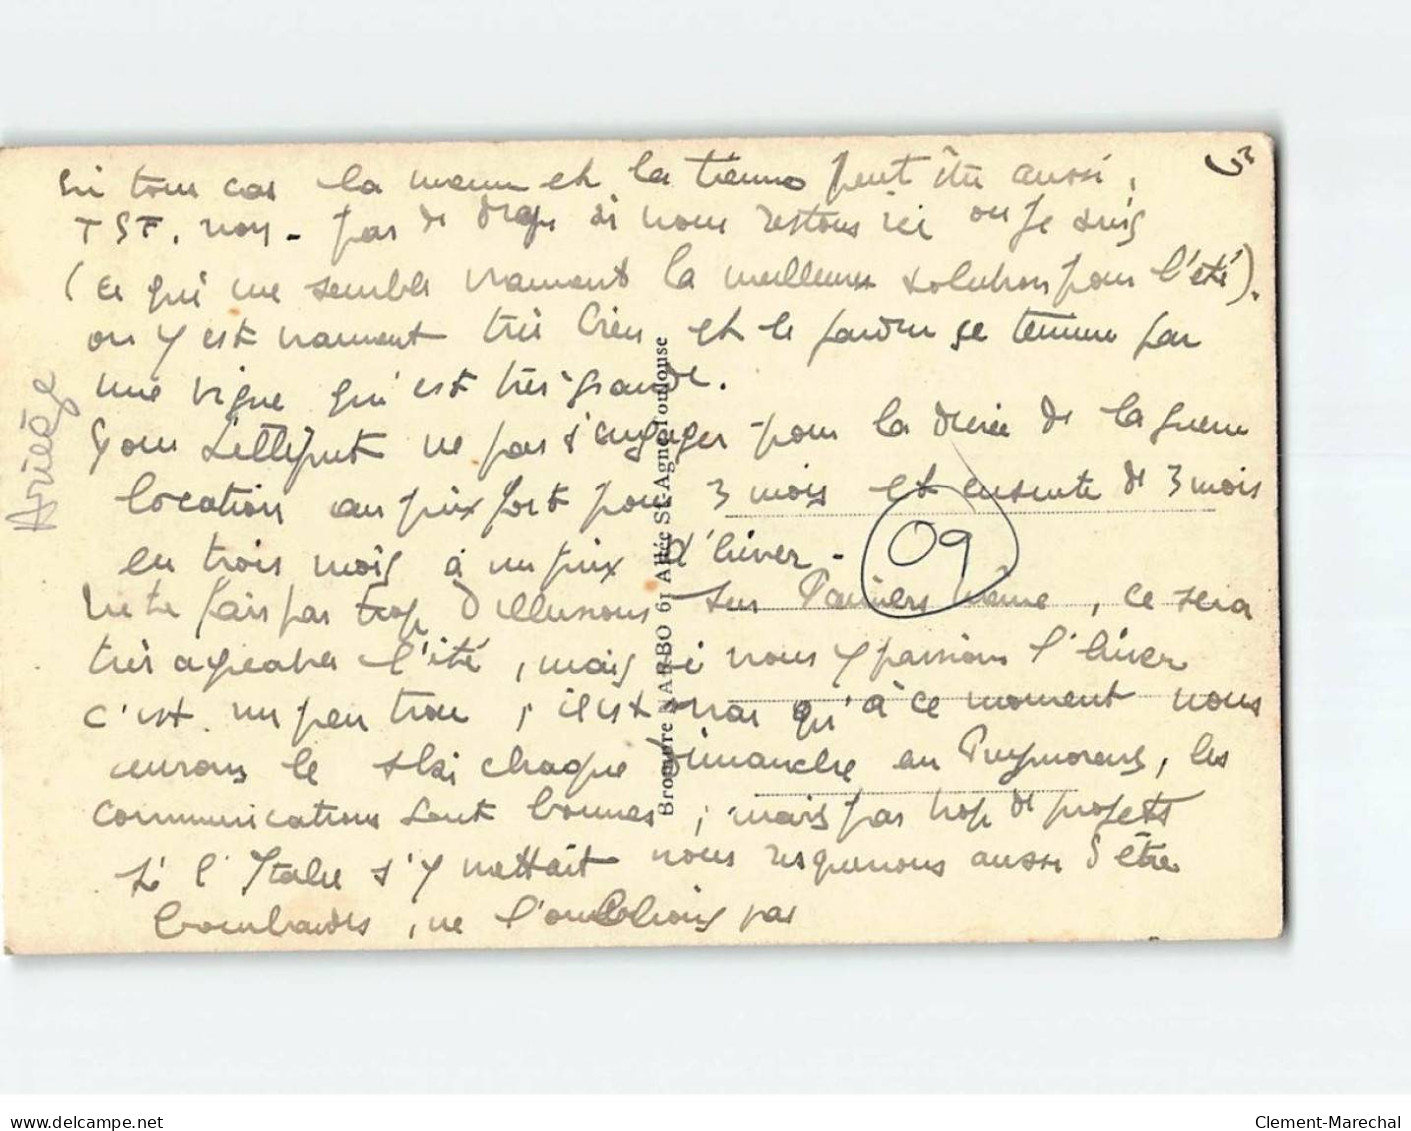 En tous cas la mienne et la tienne peut être aussi,
TSF, non - pas de draps si nous restons ici où je suis
(ce qui me semble vraiment la meilleure solution pour l'été).
on y est vraiment très bien et le jardin se termine par
une vigne qui est très grande.
Pour Lilliput ne pas s'engager pour la durée de la guerre
location au prix fort pour 3 mois et ensuite de 3 mois
en trois mois à un prix d'hiver -
Ne te fais pas trop d'illusions sur Pamiers même, ce sera
très agréable l'été, mais si nous y passions l'hiver
c'est un peu trou, il est vrai qu'à ce moment nous
aurons le ski chaque dimanche au Puymorens, les
communications sont bonnes, mais pas trop de projets
Si l'Italie s'y mettait nous risquerions aussi d'être
bombardés, ne l'oublions pas
3
Ariège
09
Bromure NARBO 61 Allée St-Agne Toulouse
delcampe.net
Clement-Marechal